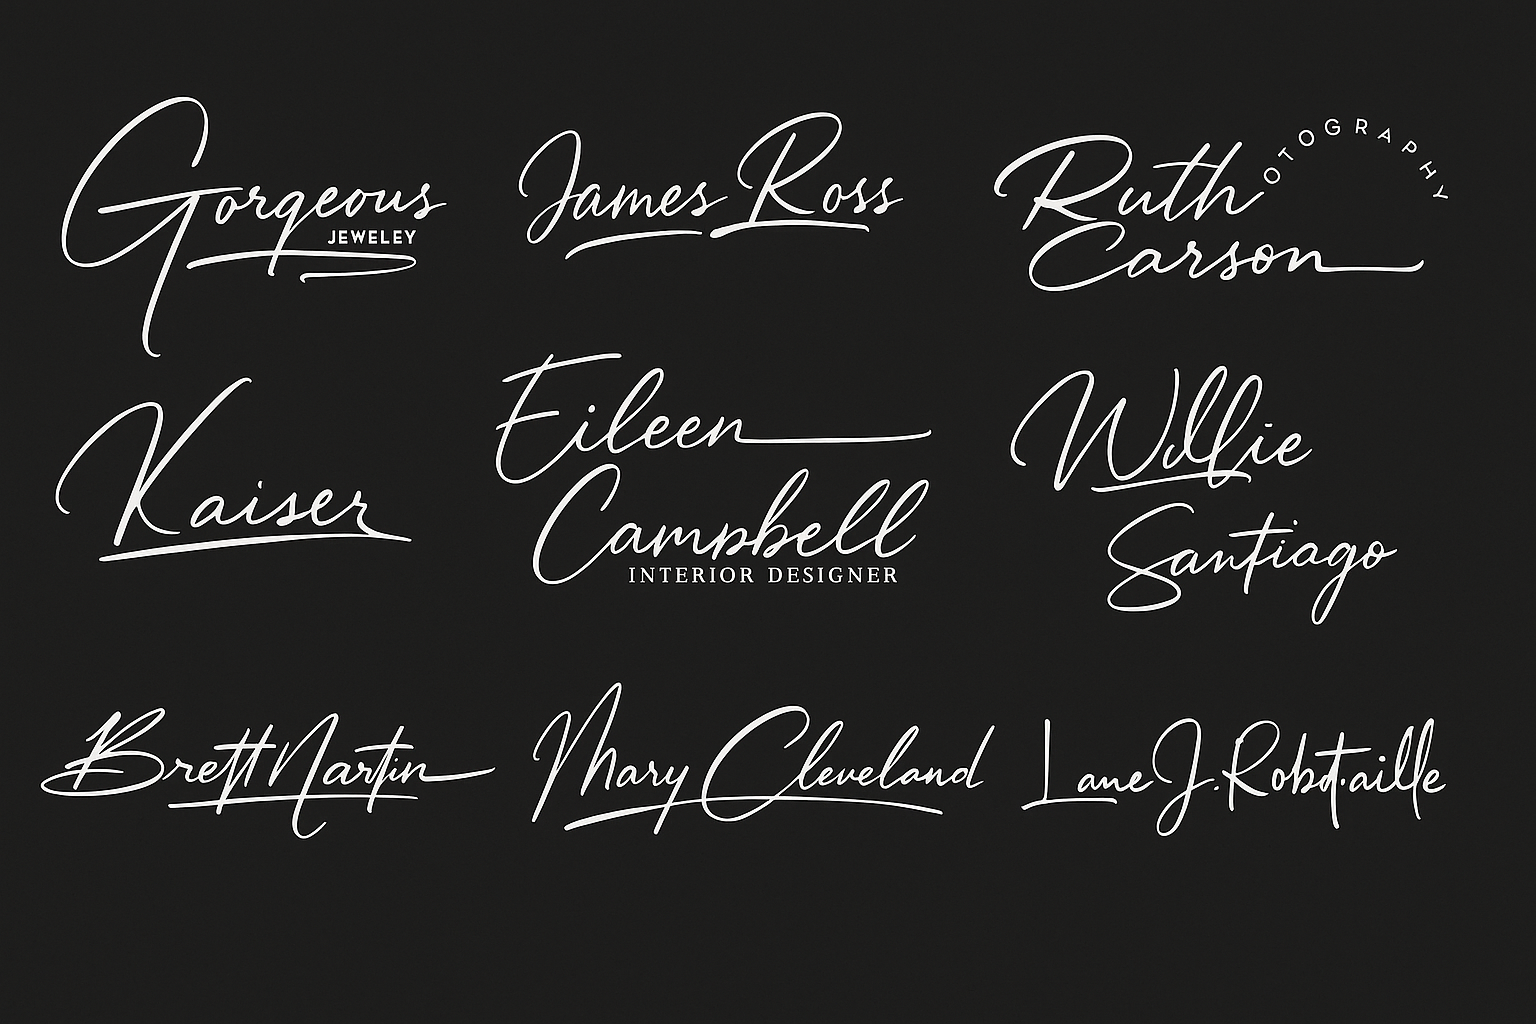 Gorgeous
JEWELEY
James Ross
Ruth
OTOGRAPHY
Carson
Kaiser
Eileen
Campbell
INTERIOR DESIGNER
Willie
Santiago
Brett Nartin
Mary Cleveland
Lane J. Robot.aille